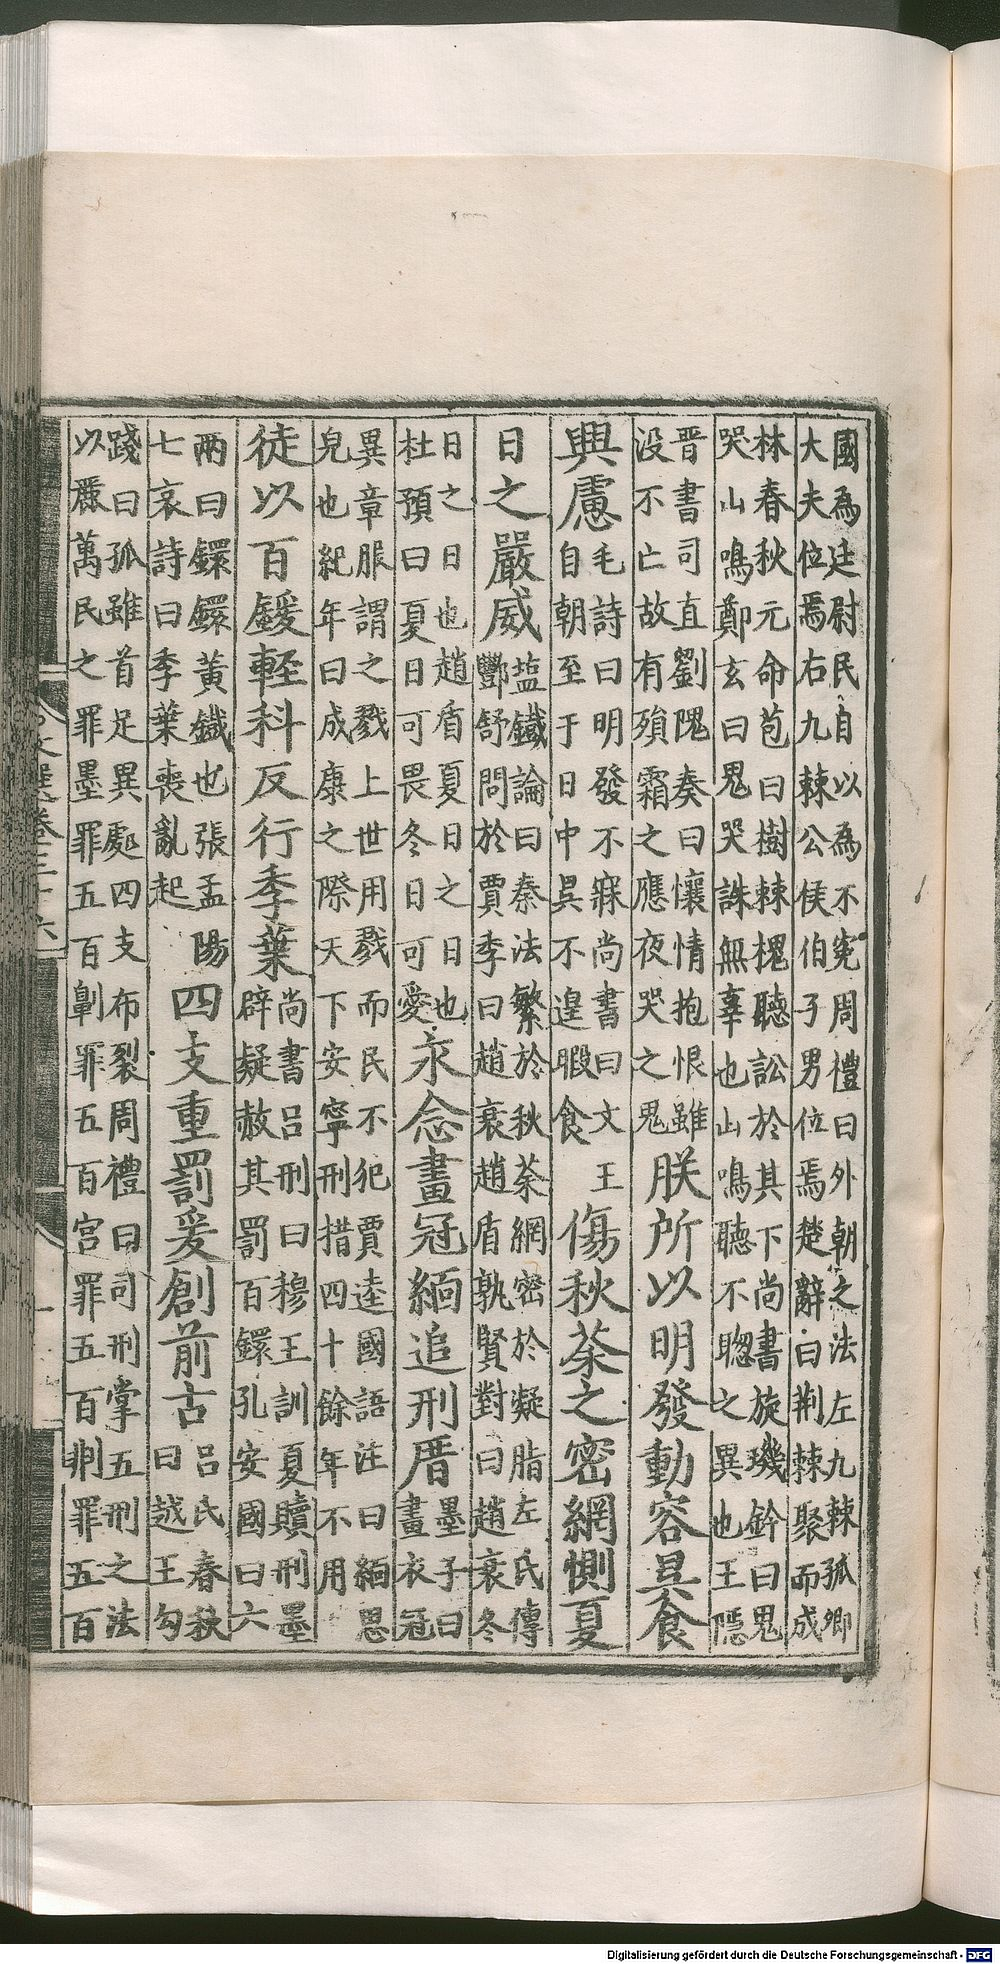 國為廷尉民自以為不寃周禮曰外朝之法左九棘孤卿
大夫位焉右九棘公侯伯子男位焉楚辭曰荆棘聚而成
林春秋元命苞曰樹棘槐聽訟於其下尚書旋璣鈐曰鬼
哭山鳴鄭玄曰鬼哭誅無辜也山鳴聽不聦之異也王隱
晋書司直劉隗奏曰懷情抱恨雖
没不亡故有殞霜之應夜哭之鬼
朕所以明發動容昃食
興慮
毛詩曰明發不寐尚書曰文王
自朝至于日中昃不遑暇食
傷秋荼之密網惻夏
日之嚴威
塩鐵論曰秦法繁於秋荼網密於凝脂左氏傳
酆舒問於賈季曰趙衰趙盾孰賢對曰趙衰冬
日之日也趙盾夏日之日也
杜預曰夏日可畏冬日可愛
永念畫冠緬追刑厝
墨子曰
畫衣冠
異章服謂之戮上世用戮而民不犯賈逵國語注曰緬思
皃也紀年曰成康之際天下安寧刑措四十餘年不用
徒以百鍰軽科反行季葉
尚書呂刑曰穆王訓夏贖刑墨
辟疑赦其罰百鐶孔安國曰六
兩曰鐶鐶黃鐵也張孟陽
七哀詩曰季葉喪亂起
四支重罰爰創前古
呂氏春秋
曰越王勾
踐曰孤雖首足異處四支布裂周禮曰司刑掌五刑之法
以麗萬民之罪墨罪五百劓罪五百宮罪五百剕罪五百
Digitalisierung gefördert durch die Deutsche Forschungsgemeinschaft - DFG